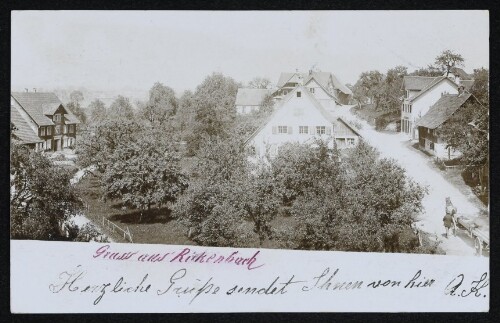 Gruss aus Rickenbach
Herzliche Grüße sendet Ihnen von hier A. K.